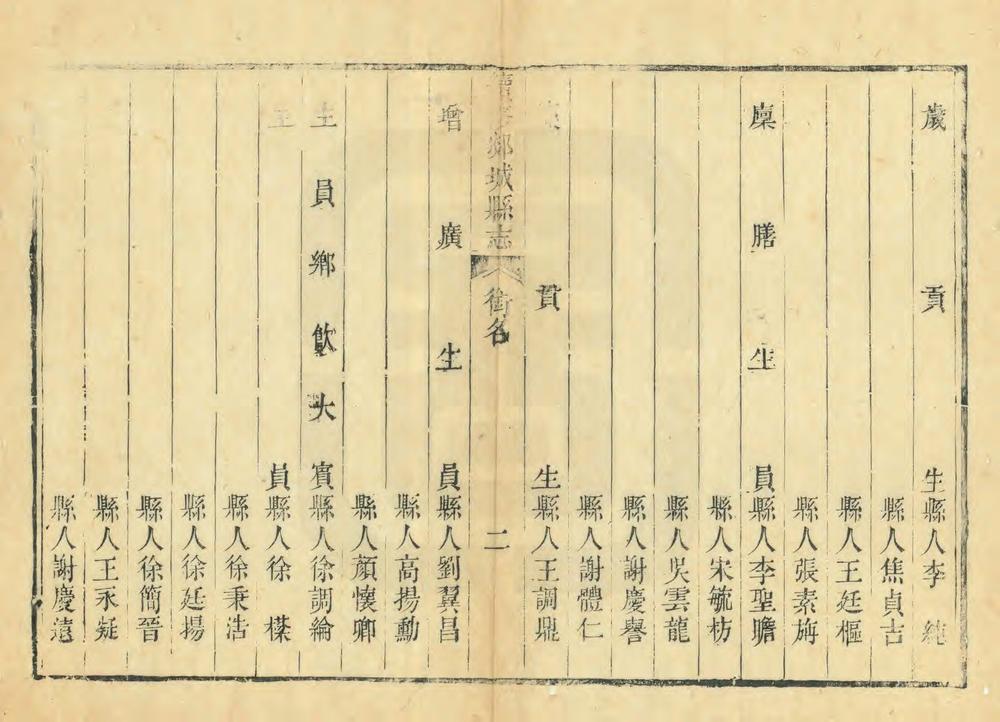 歲貢生縣人李純
縣人焦貞吉
縣人王廷樞
縣人張素旃
廩膳生員縣人李聖瞻
縣人宋毓枋
縣人吳雲龍
縣人謝慶譽
縣人謝體仁
貢生縣人王調鼎
郯城縣志 銜名 二
增廣生員縣人劉翼昌
縣人高揚勳
縣人顏懷卿
生員鄉飲大賓縣人徐調綸
生員縣人徐
縣人徐秉浩
縣人徐廷揚
縣人徐簡晉
縣人王永凝
縣人謝慶遠